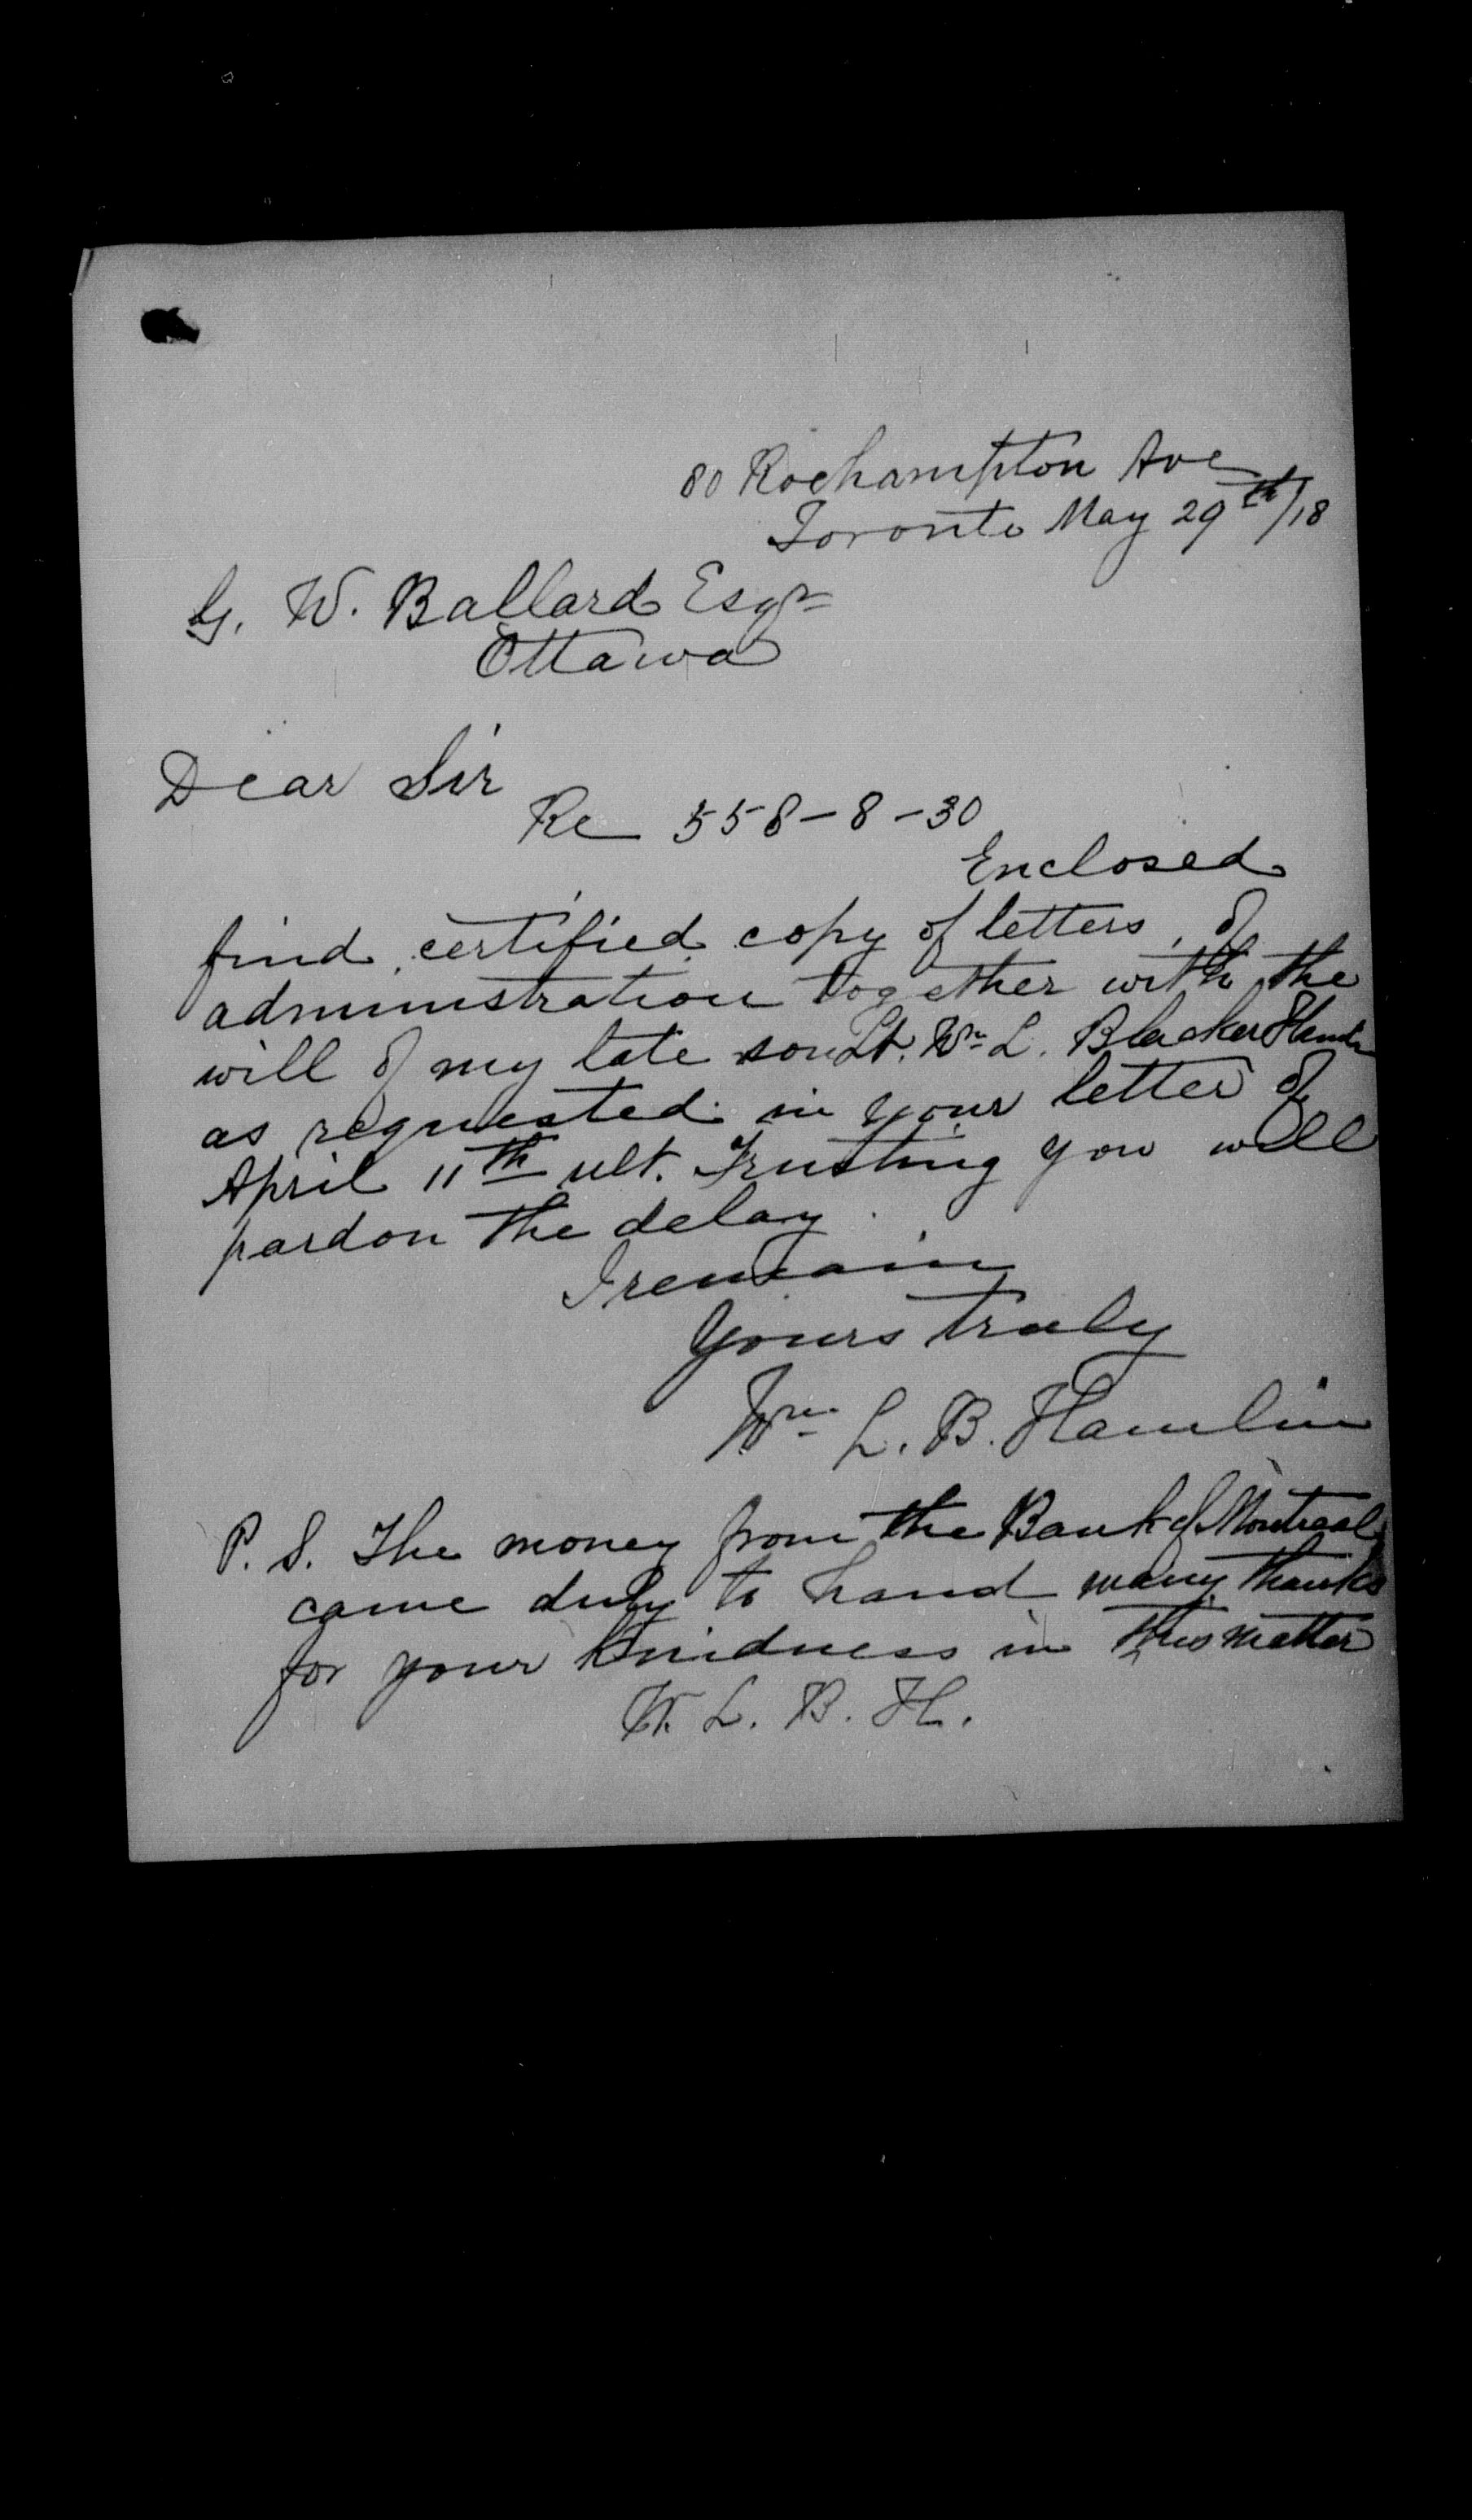 80 Roehampton Ave
Toronto May 29th/18
G. W. Ballard Esqr
Ottawa
Dear Sir
Re 558-8-30
Enclosed
find certified copy of letters of
administration together with the
will of my late son Lt. Wm L. Blacker Hamlin
as requested in your letter of
April 11th ult. Trusting you will
pardon the delay.
I remain
Yours truly
Wm L. B. Hamlin
P. S. The money from the Bank of Montreal
came duly to hand many thanks
for your kindness in this matter
W. L. B. H.